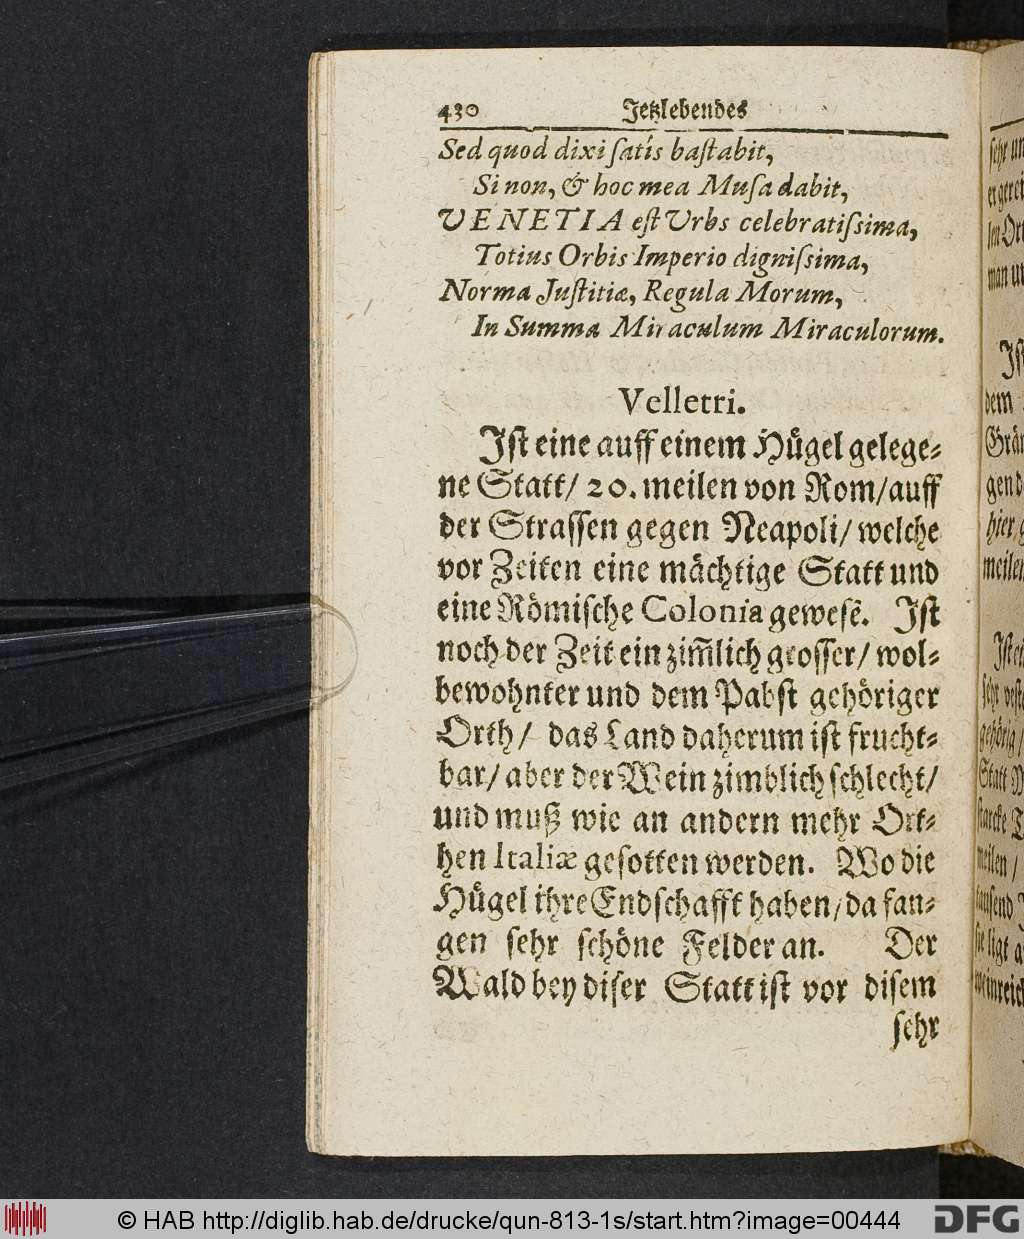 430 Jetzlebendes
Sed quod dixi ſatis baſtabit,
Si non, & hoc mea Muſa dabit,
VENETIA eſt Urbs celebratiſsima,
Totius Orbis Imperio digniſsima,
Norma Juſtitiæ, Regula Morum,
In Summa Miraculum Miraculorum.
Velletri.
Iſt eine auff einem Hügel gelege⸗
ne Statt/ 20. meilen von Rom/ auff
der Straſſen gegen Neapoli/ welche
vor Zeiten eine mächtige Statt und
eine Römiſche Colonia geweſẽ. Iſt
noch der Zeit ein zim̃lich groſſer/ wol⸗
bewohnter und dem Pabſt gehöriger
Orth/ das Land daherum iſt frucht⸗
bar/ aber der Wein zimblich ſchlecht/
und muß wie an andern mehr Ort⸗
hen Italiæ geſotten werden. Wo die
Hügel ihre Endſchafft haben/ da fan⸗
gen ſehr ſchöne Felder an. Der
Wald bey diſer Statt iſt vor diſem
ſehr
ſehr
dem
hier
meilen
gehörig/
Statt
ſtarcke
meilen/
© HAB http://diglib.hab.de/drucke/qun-813-1s/start.htm?image=00444
DFG